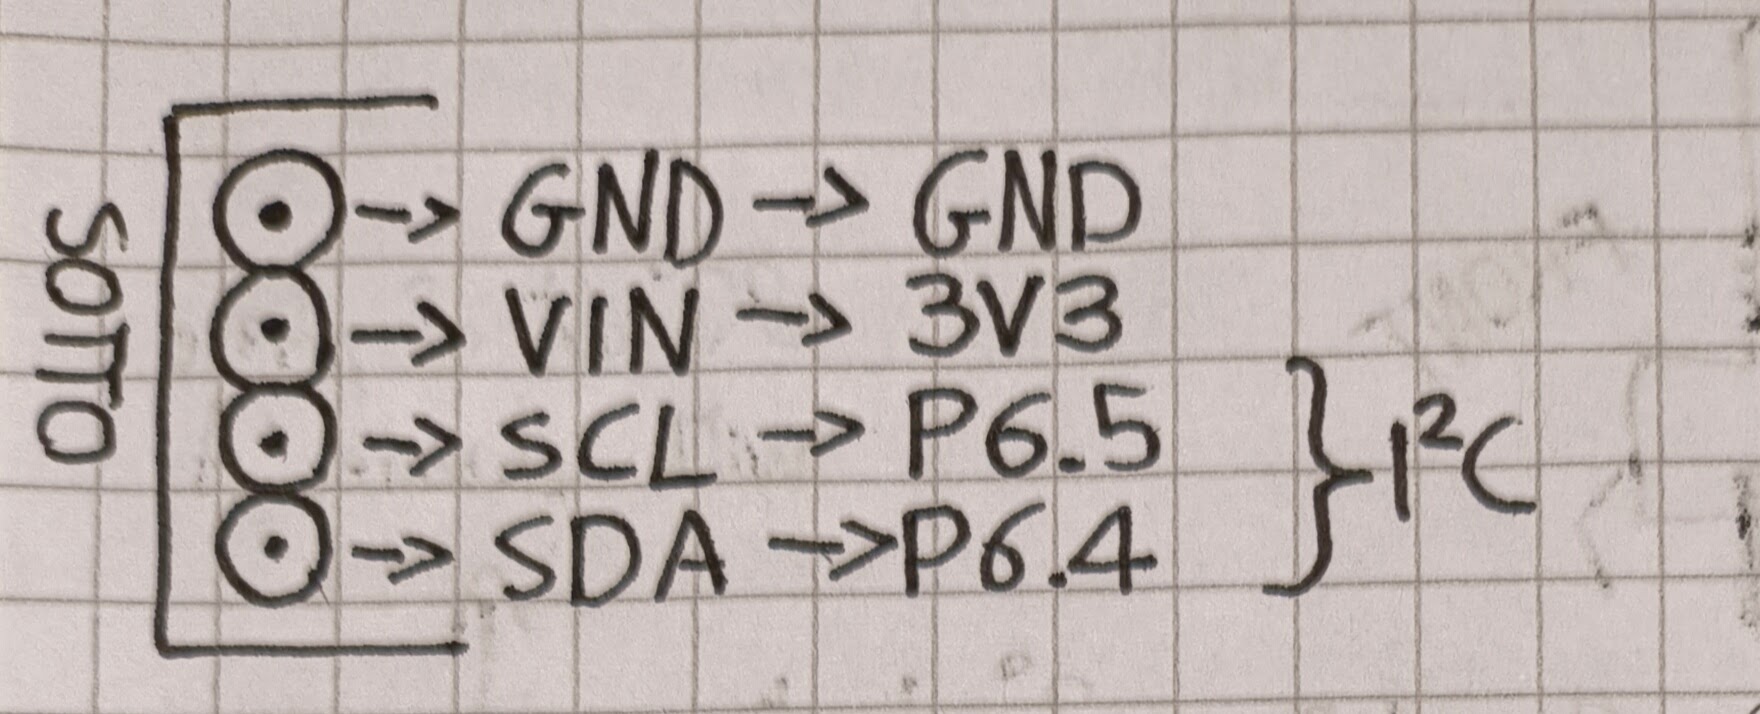 SOTTO
→ GND → GND
→ VIN → 3V3
→ SCL → P6.5
→ SDA → P6.4
} I²C